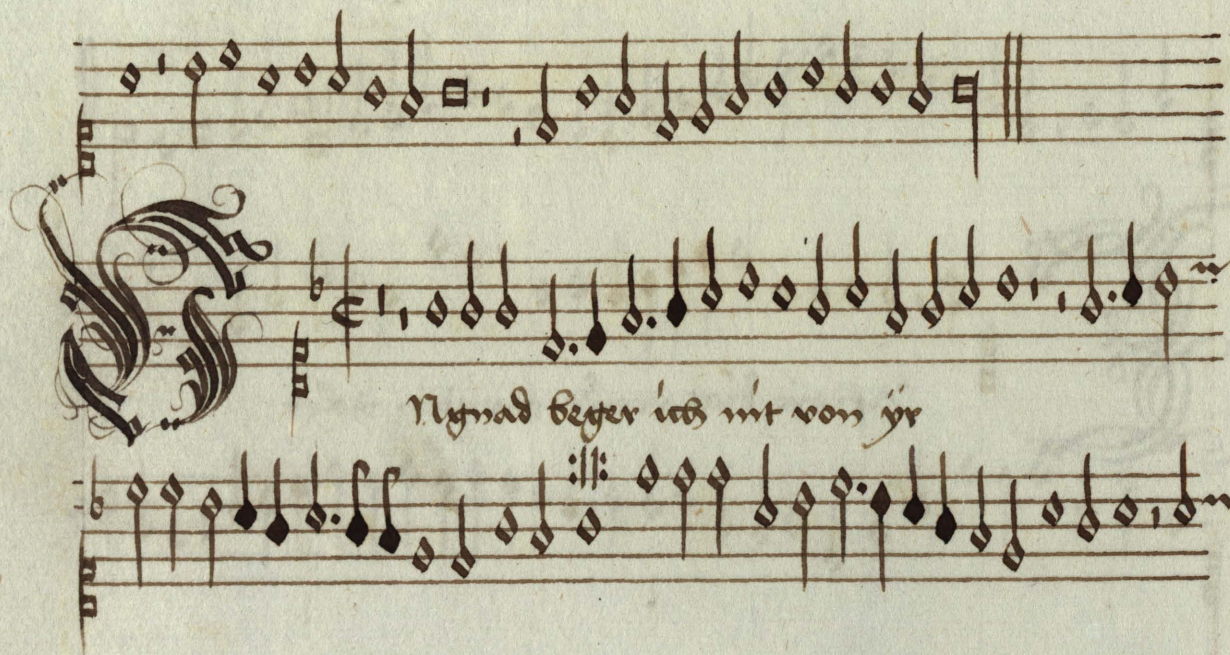 VNgnad beger ich nit von yr